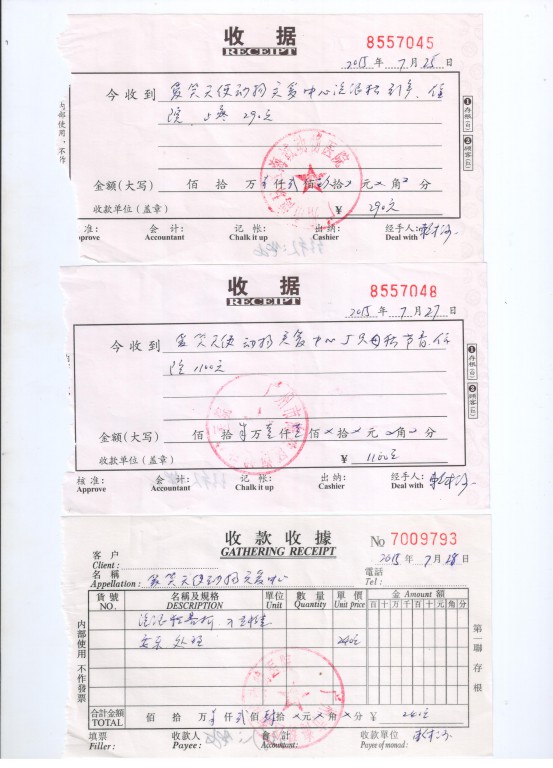 收 据
RECEIPT
8557045
2015 年 7 月 25 日
今收到 爱笑天使动物关爱中心流浪猫
住
院 290元
金额(大写) 佰 拾 万 仟 贰 佰 玖 拾 元 角 分
收款单位(盖章) ¥ 290元
准: 会 计: 记 帐: 出 纳: 经手人:
pprove Accountant Chalk it up Cashier Deal with
内部使用、不作
❶存根(白)
❷顾客(红)
收 据
RECEIPT
8557048
2015 年 7 月 27 日
今收到 爱笑天使动物关爱中心5只母猫节育.住
院 1100元
金额(大写) 佰 拾 万 壹 仟 壹 佰 拾 元 角 分
收款单位(盖章) ¥ 1100元
核 准: 会 计: 记 帐: 出 纳: 经手人:
Approve Accountant Chalk it up Cashier Deal with
❶存根(白)
❷顾客(红)
收 款 收 據
GATHERING RECEIPT
No 7009793
客 户
Client :
2015 年 7 月 28 日
名 稱
Appellation: 爱笑天使动物关爱中心
電話
Tel :
貨 號 名稱及規格 單位 數 量 單 價 金 Amount 額
NO. DESCRIPTION Unit Quantity Unit price 百 十 万 千 百 十 元 角 分
流浪猫
安乐 处理 240元
合計金額
TOTAL 佰 拾 万 仟 贰 佰 肆 拾 元 角 分 ¥ 240元
填票 收款人 會計 收款單位
Filler : Payee : Accountant : Payee of monad :
内部使用 不作發票
第一聯 存根